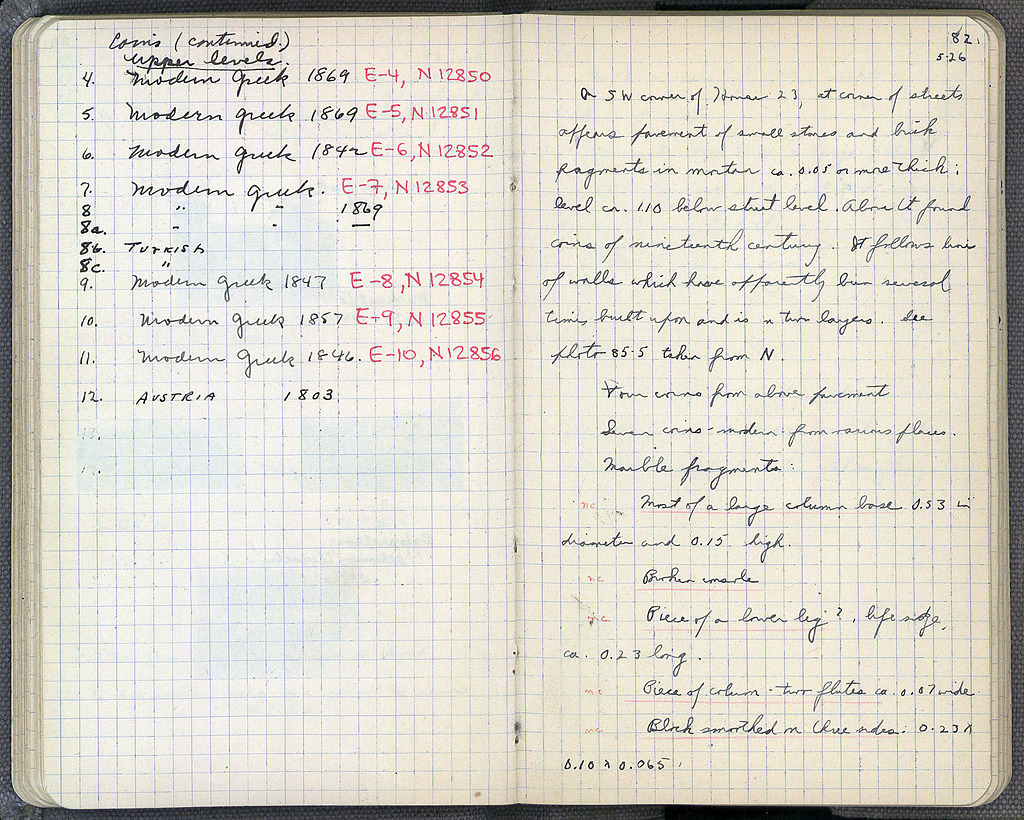 Coins (continued.)
Upper levels.
4. Modern Greek 1869 E-4, N 12850
5. Modern Greek 1869 E-5, N 12851
6. Modern Greek 1842 E-6, N 12852
7. Modern Greek. E-7, N 12853
8 " " 1869
8a. " "
8b. TURKISH
8c. "
9. Modern Greek 1847 E-8, N 12854
10. Modern Greek 1857 E-9, N 12855
11. Modern Greek 1846. E-10, N 12856
12. AUSTRIA 1803
13.
82.
5-26
At SW corner of House 23, at corner of streets
appears pavement of small stones and brick
fragments in mortar ca. 0.05 or more thick;
level ca. 1.10 below street level. Above it found
coins of nineteenth century. It follows line
of walls which have apparently been several
times built upon and is in two layers. See
photo 85-5 taken from N.
Four coins from above pavement
Seven coins - modern - from various places.
Marble fragments:
nc Most of a large column base 0.53 in
diameter and 0.15 high.
nc Broken console
nc Piece of a lower leg?, life size,
ca. 0.23 long.
nc Piece of column - two flutes ca. 0.07 wide
nc Block smoothed on three sides: 0.23 x
0.10 x 0.065.